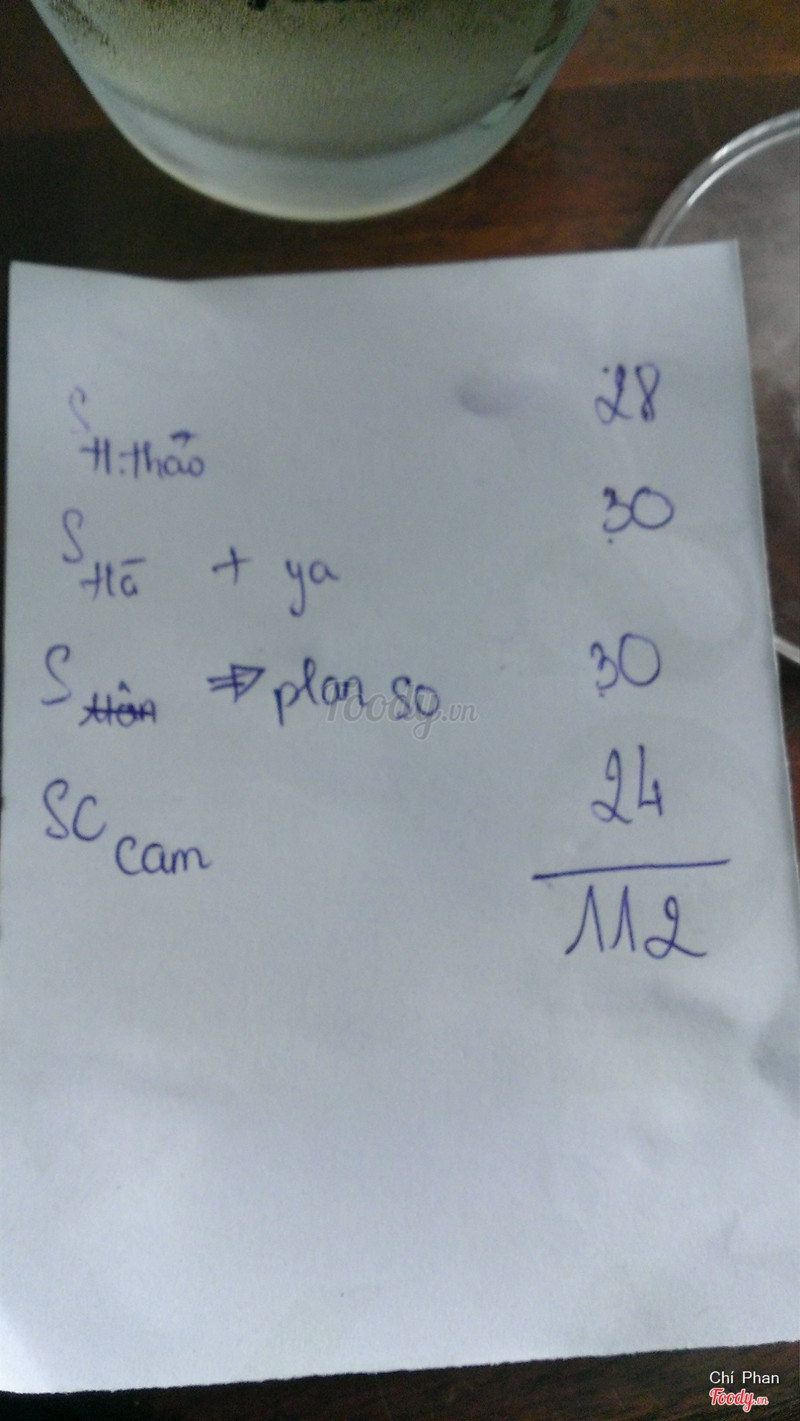 S H.thảo 28
S Hā + ya 30
S ⇒ plan so 30
SC cam 24
112
foody.vn
Chí Phan
Foody.vn